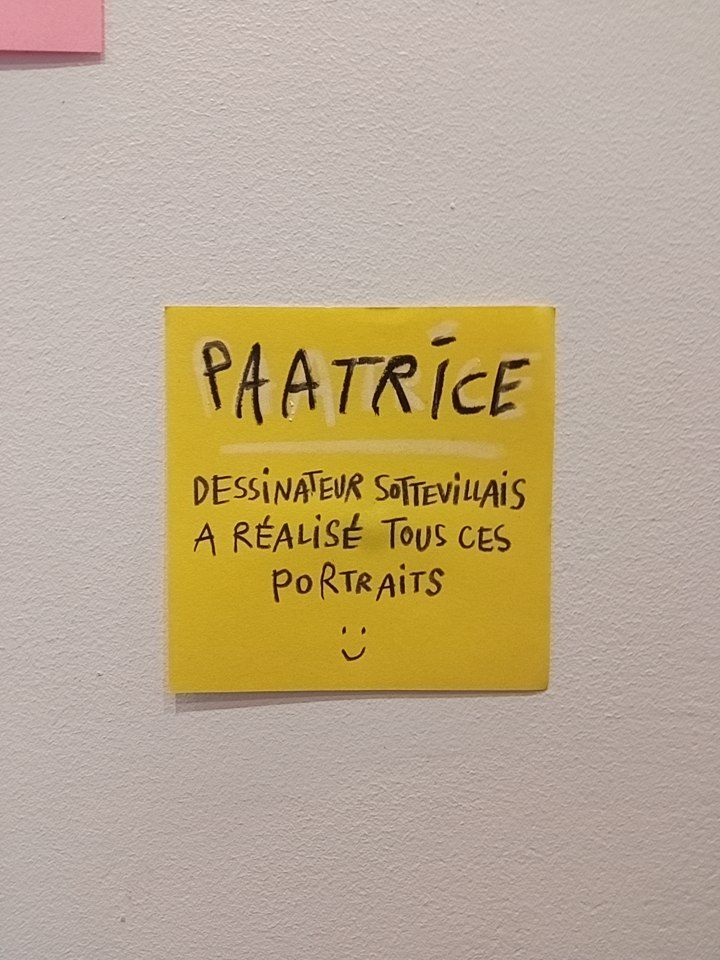 PAATRICE
DESSINATEUR SOTTEVILLAIS
A RÉALISÉ TOUS CES
PORTRAITS